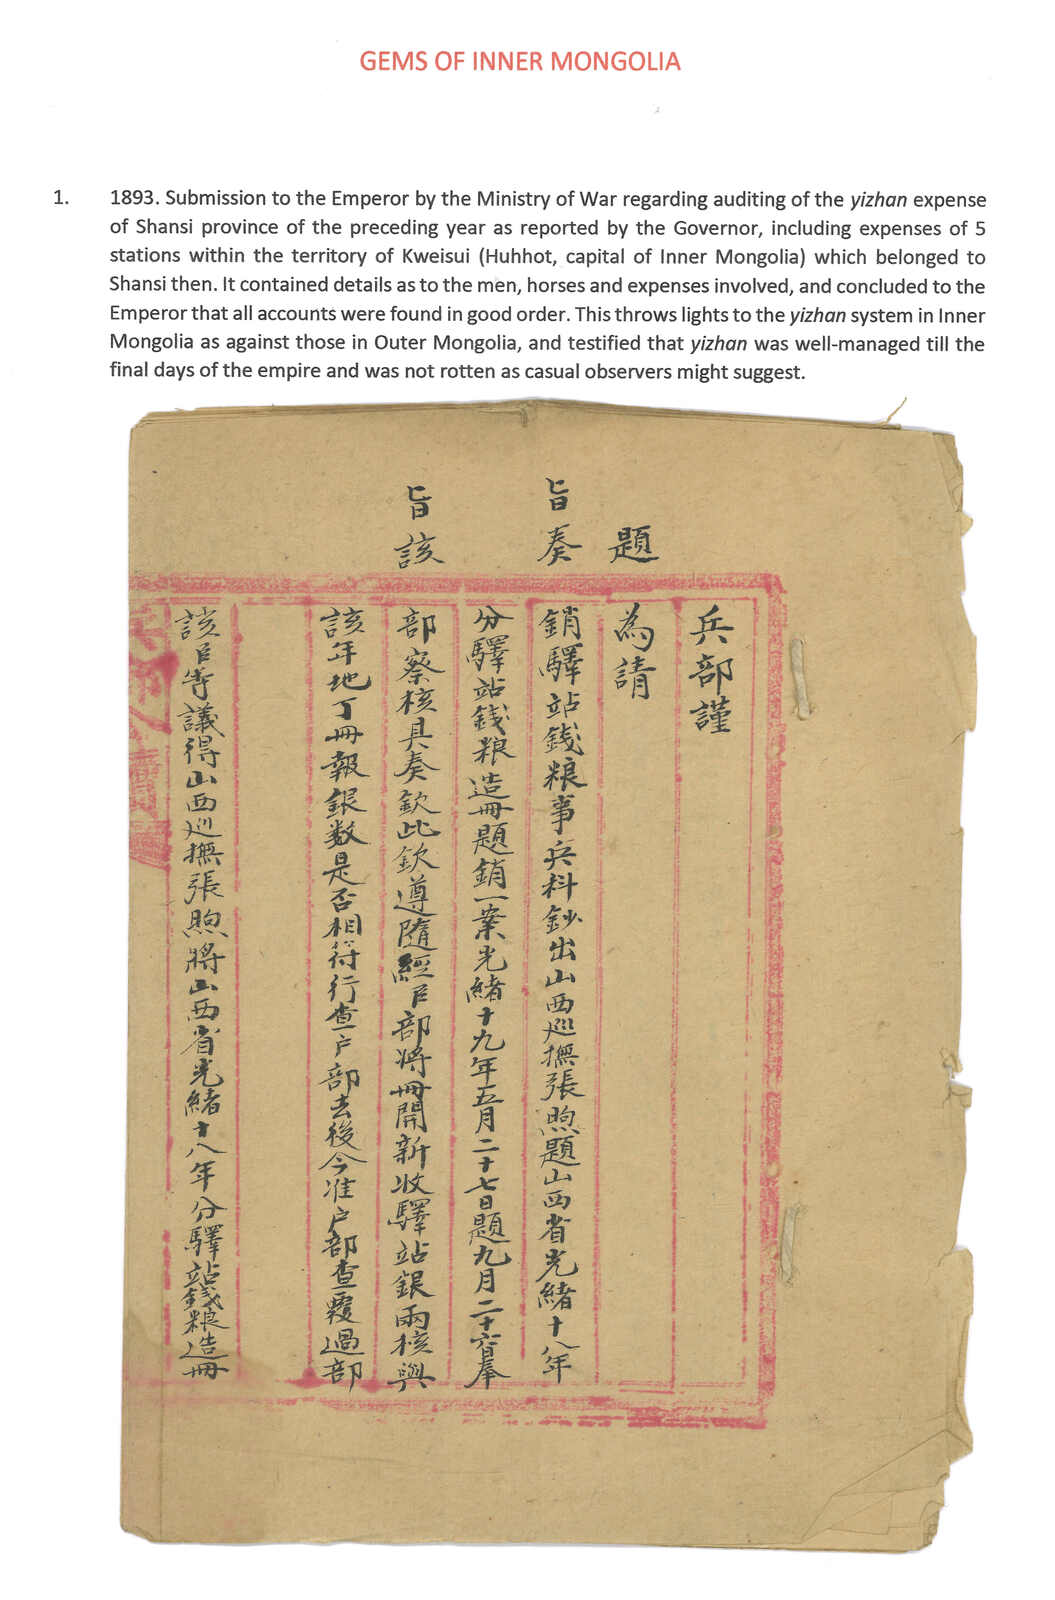 GEMS OF INNER MONGOLIA
1. 1893. Submission to the Emperor by the Ministry of War regarding auditing of the yizhan expense
of Shansi province of the preceding year as reported by the Governor, including expenses of 5
stations within the territory of Kweisui (Huhhot, capital of Inner Mongolia) which belonged to
Shansi then. It contained details as to the men, horses and expenses involved, and concluded to the
Emperor that all accounts were found in good order. This throws lights to the yizhan system in Inner
Mongolia as against those in Outer Mongolia, and testified that yizhan was well-managed till the
final days of the empire and was not rotten as casual observers might suggest.
兵部謹
題為請
旨奏銷驛站錢粮事兵科鈔出山西巡撫張煦題山西省光緒十八年
分驛站錢粮造冊題銷一案光緒十九年五月二十七日題九月二十六日奉
旨該部察核具奏欽此欽遵隨經臣部將冊開新收驛站銀兩核與
該年地丁冊報銀数是否相符行查户部去後今准户部查覆過部
該臣等議得山西巡撫張煦將山西省光緒十八年分驛站錢粮造冊